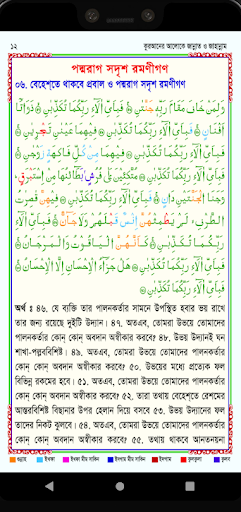 ১২ কুরআনের আলোকে জান্নাত ও জাহান্নাম
পদ্মরাগ সদৃশ রমণীগণ
০৬. বেহেশ্তে থাকবে প্রবাল ও পদ্মরাগ সদৃশ রমণীগণ
وَلِمَنْ خَافَ مَقَامَ رَبِّهِ جَنَّتَٰنِ ۝ فَبِأَيِّ آلَاءِ رَبِّكُمَا تُكَذِّبَانِ ۝ ذَوَاتَا
أَفْنَانٍ ۝ فَبِأَيِّ آلَاءِ رَبِّكُمَا تُكَذِّبَانِ ۝ فِيهِمَا عَيْنَانِ تَجْرِيَانِ ۝
فَبِأَيِّ آلَاءِ رَبِّكُمَا تُكَذِّبَانِ ۝ فِيهِمَا مِنْ كُلِّ فَاكِهَةٍ زَوْجَانِ ۝
فَبِأَيِّ آلَاءِ رَبِّكُمَا تُكَذِّبَانِ ۝ مُتَّكِئِينَ عَلَىٰ فُرُشٍ بَطَائِنُهَا مِنْ إِسْتَبْرَقٍ
وَجَنَى الْجَنَّتَيْنِ دَانٍ ۝ فَبِأَيِّ آلَاءِ رَبِّكُمَا تُكَذِّبَانِ ۝ فِيهِنَّ قَاصِرَاتُ
الطَّرْفِ لَمْ يَطْمِثْهُنَّ إِنْسٌ قَبْلَهُمْ وَلَا جَانٌّ ۝ فَبِأَيِّ آلَاءِ
رَبِّكُمَا تُكَذِّبَانِ ۝ كَأَنَّهُنَّ الْيَاقُوتُ وَالْمَرْجَانُ ۝
فَبِأَيِّ آلَاءِ رَبِّكُمَا تُكَذِّبَانِ ۝ هَلْ جَزَاءُ الْإِحْسَانِ إِلَّا الْإِحْسَانُ ۝
অর্থ : ৪৬. যে ব্যক্তি তার পালনকর্তার সামনে উপস্থিত হবার ভয় রাখে
তার জন্য রয়েছে দুইটি উদ্যান। ৪৭. অতএব, তোমরা উভয়ে তোমাদের
পালনকর্তার কোন্ কোন্ অবদান অস্বীকার করবে? ৪৮. উভয় উদ্যানই ঘন
শাখা-পল্লববিশিষ্ট। ৪৯. অতএব, তোমরা উভয়ে তোমাদের পালনকর্তার
কোন্ কোন্ অবদান অস্বীকার করবে? ৫০. উভয়ের মধ্যে প্রত্যেক ফল
বিভিন্ন রকমের হবে। ৫১. অতএব, তোমরা উভয়ে তোমাদের পালনকর্তার
কোন্ কোন্ অবদান অস্বীকার করবে? ৫২. তারা তথায় রেশমের
আস্তরবিশিষ্ট বিছানার উপর হেলান দিয়ে বসবে ৫৩. উভয় উদ্যানের ফল
তাদের নিকট ঝুলবে। ৫৪. অতএব, তোমরা উভয়ে তোমাদের পালনকর্তার
কোন্ কোন্ অবদান অস্বীকার করবে? ৫৫. তথায় থাকবে আনতনয়না
গুন্নাহ ইখফা ইখফা মীম সাকিন ইদগাম মীম সাকিন ইদগাম কলকলা কুলব